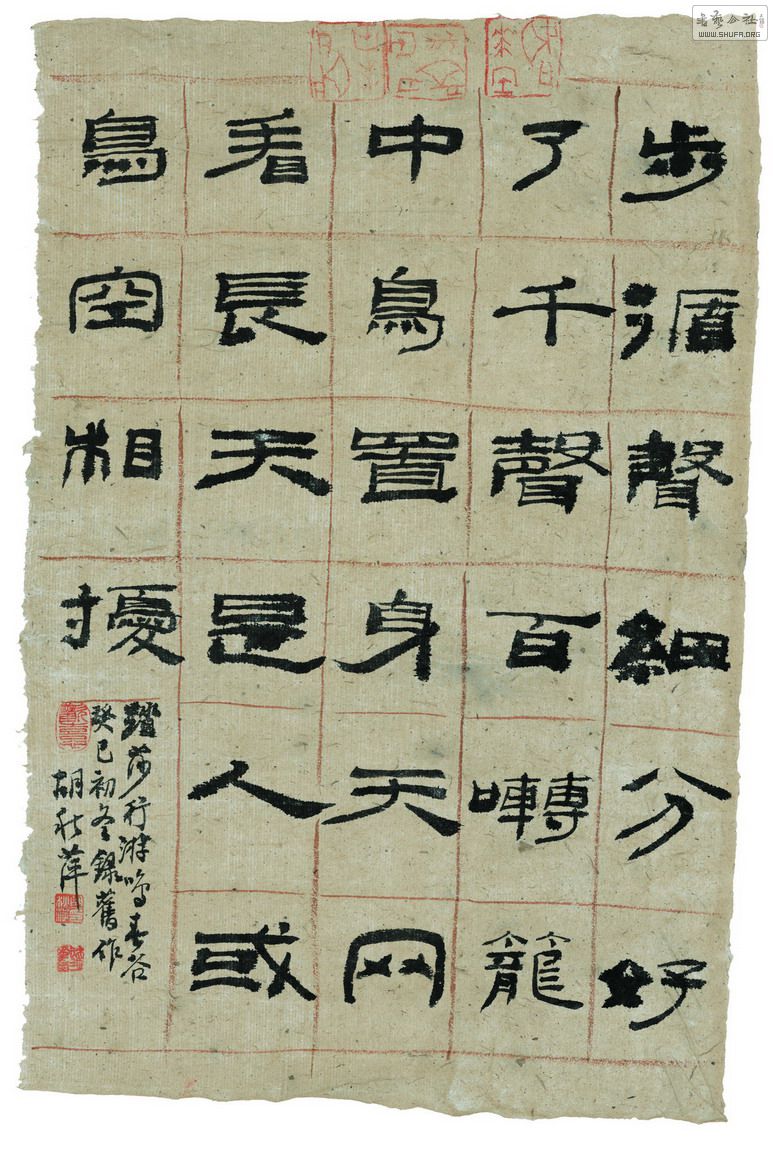 步循聲細分好
了千聲百囀籠
中鳥置身天网
看長天是人或
鳥空相擾
踏莎行游鳴春谷
癸巳初冬錄舊作
胡秋萍
书艺公社
WWW.SHUFA.ORG